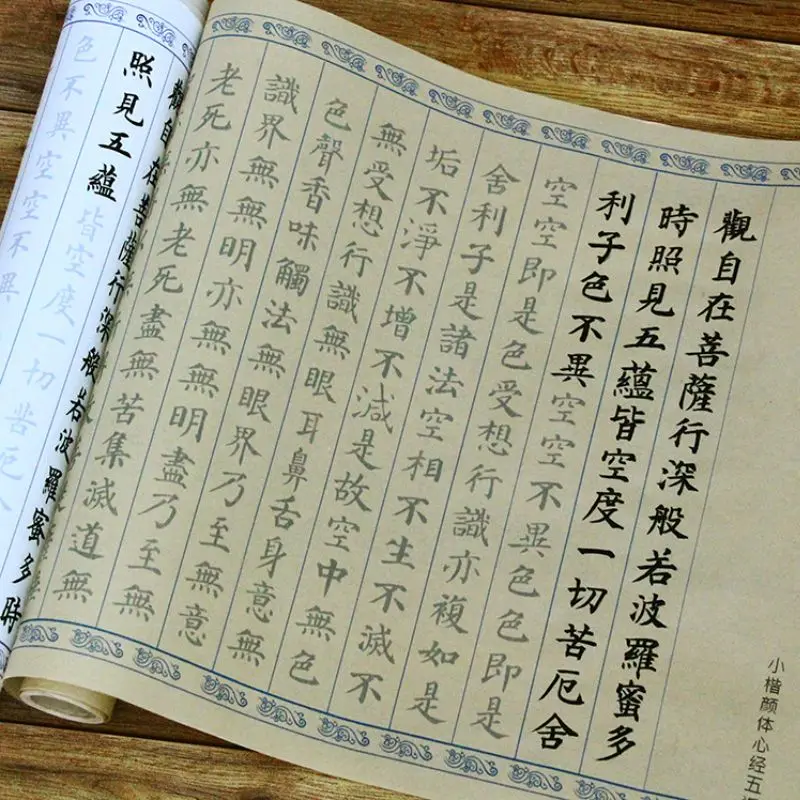 小楷颜体心经五
觀自在菩薩行深般若波羅蜜多
時照見五蘊皆空度一切苦厄舍
利子色不異空空不異色色即是
空空即是色受想行識亦複如是
舍利子是諸法空相不生不滅不
垢不淨不增不減是故空中無色
無受想行識無眼耳鼻舌身意無
色聲香味觸法無眼界乃至無意
識界無無明亦無無明盡乃至無
老死亦無老死盡無苦集滅道無
觀自在菩薩行深般若波羅蜜多時
照見五蘊皆空度一切苦厄
色不異空空不異